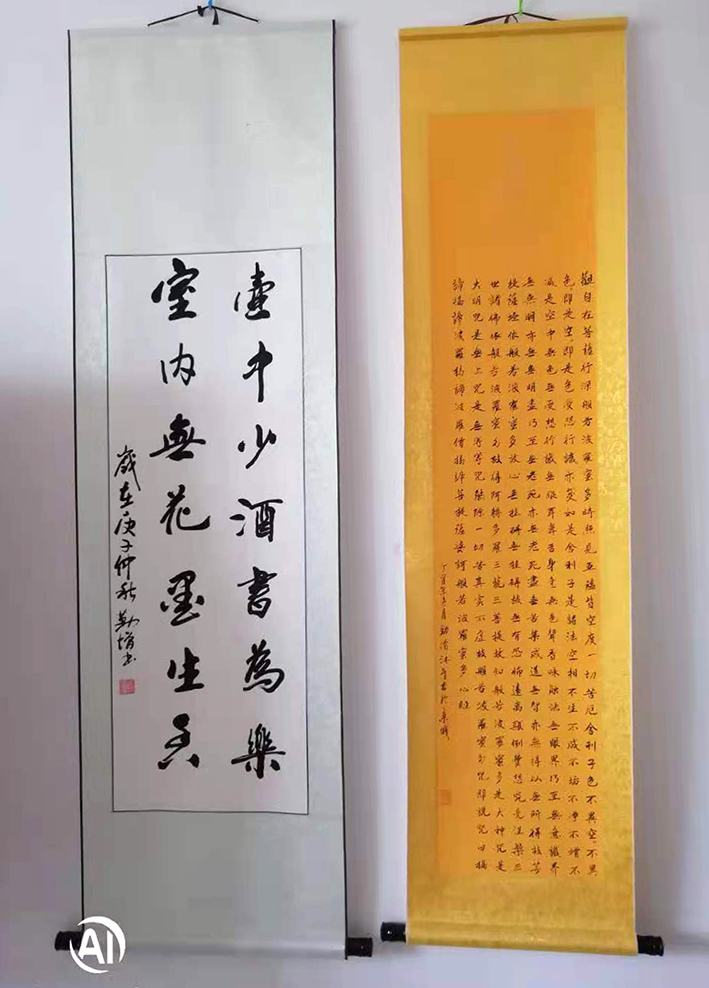 壺中少酒書為樂
室内無花墨生香
歲在庚子仲秋勤增書
觀自在菩薩行深般若波羅蜜多時照見五蘊皆空度一切苦厄舍利子色不異空空不異
色色即是空空即是色受想行識亦復如是舍利子是諸法空相不生不滅不垢不淨不增不
減是空中無色無受想行識無眼耳鼻舌身意無色聲香味觸法無眼界乃至無意識界
無無明亦無無明盡乃至無老死亦無老死盡無苦集滅道無智亦無得以無所得故菩
提薩埵依般若波羅蜜多故心無罣礙無罣礙故無有恐怖遠離顛倒夢想究竟涅槃三
世諸佛依般若波羅蜜多故得阿耨多羅三藐三菩提故知般若波羅蜜多是大神咒是
大明咒是無上咒是無等等咒能除一切苦真實不虛故說般若波羅蜜多咒即說咒曰揭
諦揭諦波羅揭諦波羅僧揭諦菩提薩婆訶般若波羅蜜多心經
丁酉年月勤增沐手書於京城
AI